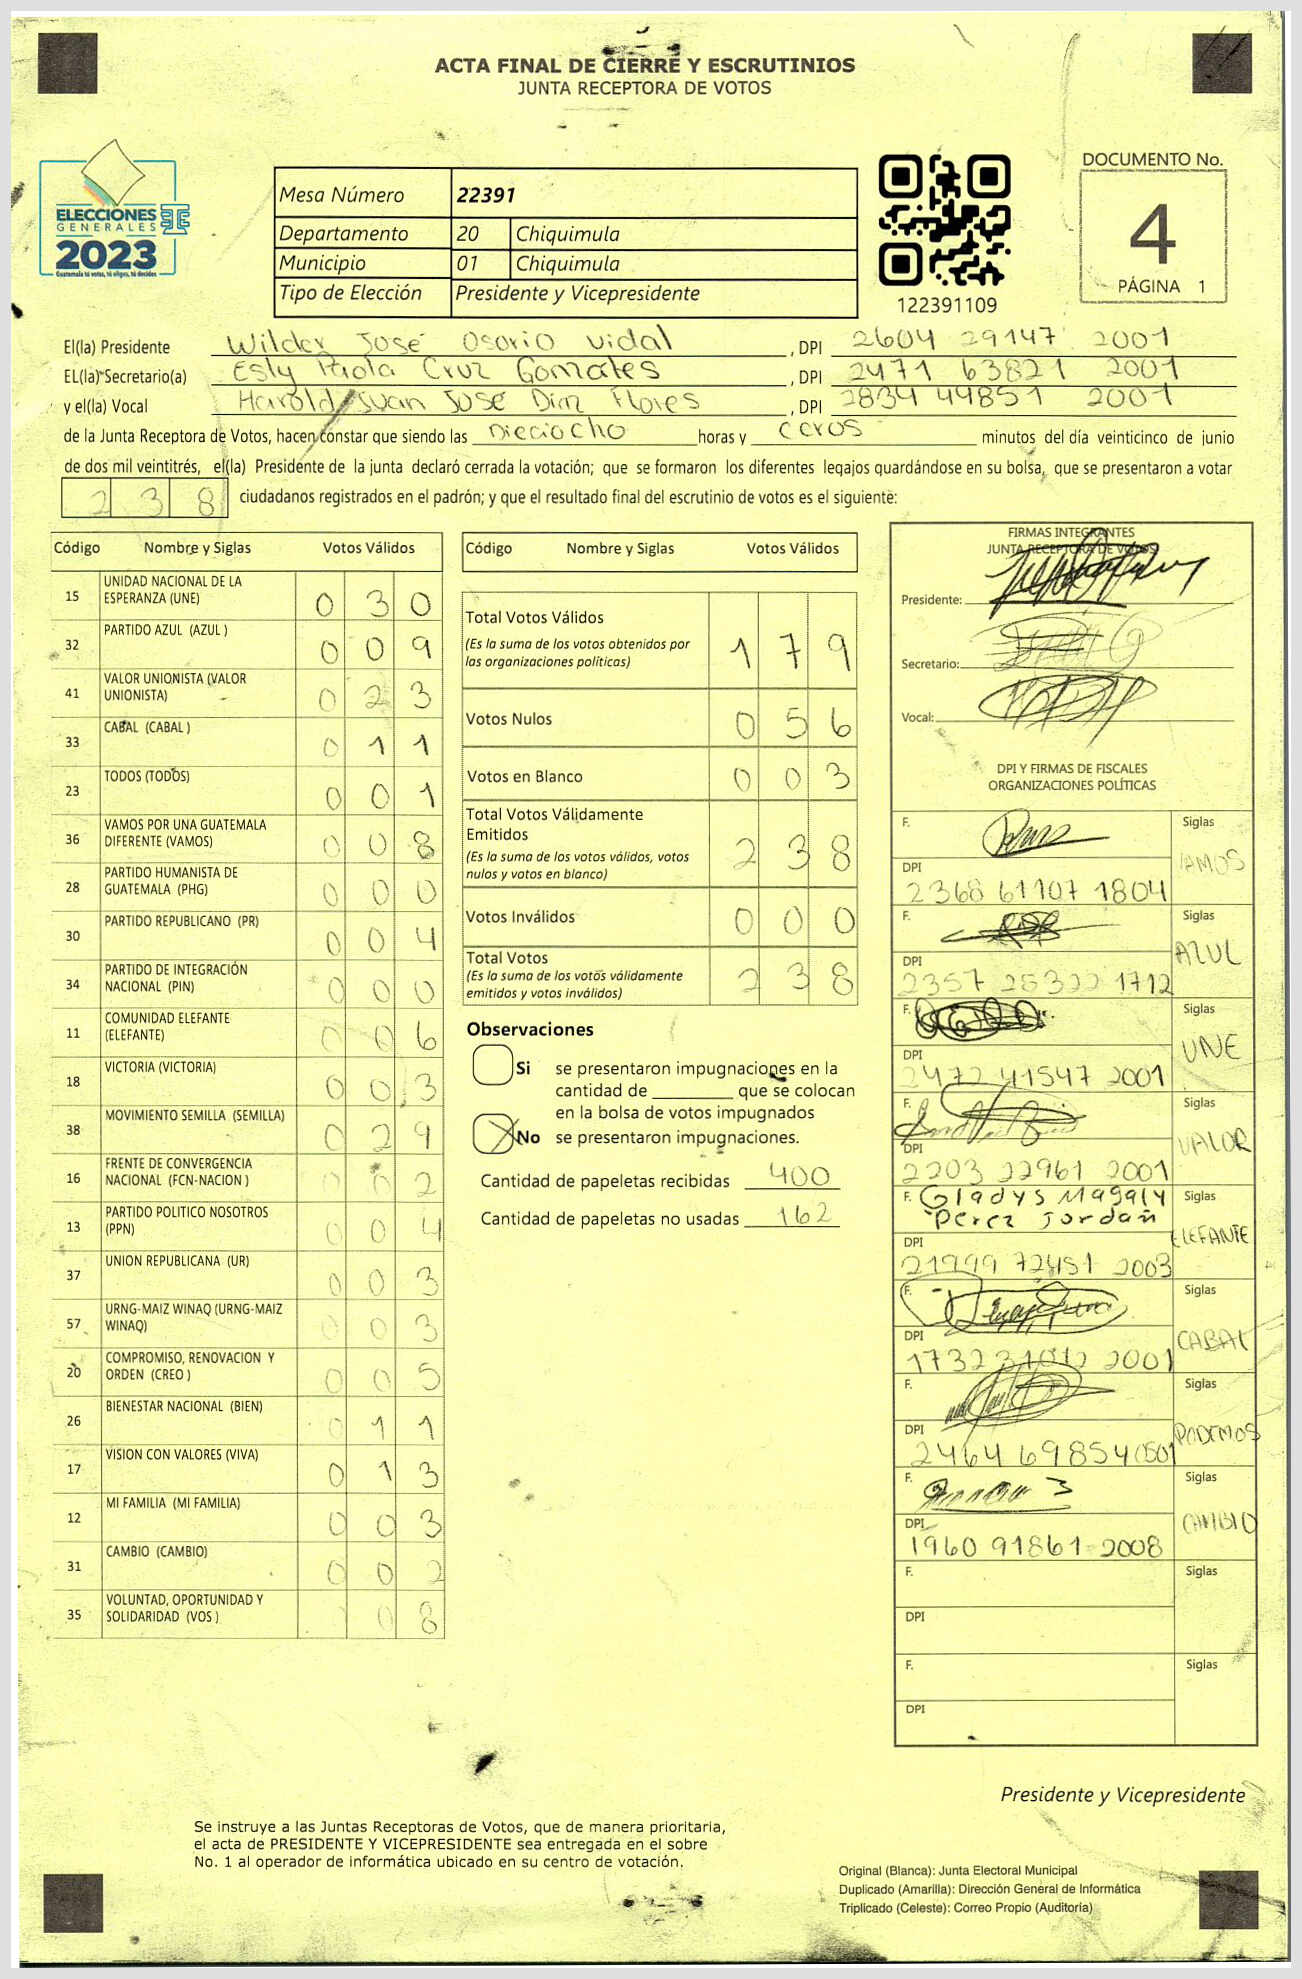 ACTA FINAL DE CIERRE Y ESCRUTINIOS
JUNTA RECEPTORA DE VOTOS
ELECCIONES
GENERALES
2023
Guatemala tú votas, tú eliges, tú decides
Mesa Número 22391
Departamento 20 Chiquimula
Municipio 01 Chiquimula
Tipo de Elección Presidente y Vicepresidente
122391109
DOCUMENTO No.
4
PÁGINA 1
El(la) Presidente Wilder José Osorio Vidal , DPI 2604 29147 2001
EL(la) Secretario(a) Esly Paola Cruz Gonzales , DPI 2471 63821 2001
y el(la) Vocal Harold Juan José Díaz Flores , DPI 2834 49851 2001
de la Junta Receptora de Votos, hacen constar que siendo las Dieciocho horas y ceros minutos del día veinticinco de junio
de dos mil veintitrés, el(la) Presidente de la junta declaró cerrada la votación; que se formaron los diferentes legajos quardándose en su bolsa, que se presentaron a votar
238 ciudadanos registrados en el padrón; y que el resultado final del escrutinio de votos es el siguiente:
Código Nombre y Siglas Votos Válidos
15 UNIDAD NACIONAL DE LA ESPERANZA (UNE) 030
32 PARTIDO AZUL (AZUL ) 009
41 VALOR UNIONISTA (VALOR UNIONISTA) 023
33 CABAL (CABAL ) 011
23 TODOS (TODOS) 001
36 VAMOS POR UNA GUATEMALA DIFERENTE (VAMOS) 008
28 PARTIDO HUMANISTA DE GUATEMALA (PHG) 000
30 PARTIDO REPUBLICANO (PR) 004
34 PARTIDO DE INTEGRACIÓN NACIONAL (PIN) 000
11 COMUNIDAD ELEFANTE (ELEFANTE) 006
18 VICTORIA (VICTORIA) 003
38 MOVIMIENTO SEMILLA (SEMILLA) 029
16 FRENTE DE CONVERGENCIA NACIONAL (FCN-NACION ) 002
13 PARTIDO POLITICO NOSOTROS (PPN) 004
37 UNION REPUBLICANA (UR) 003
57 URNG-MAIZ WINAQ (URNG-MAIZ WINAQ) 003
20 COMPROMISO, RENOVACION Y ORDEN (CREO ) 005
26 BIENESTAR NACIONAL (BIEN) 011
17 VISION CON VALORES (VIVA) 013
12 MI FAMILIA (MI FAMILIA) 003
31 CAMBIO (CAMBIO) 002
35 VOLUNTAD, OPORTUNIDAD Y SOLIDARIDAD (VOS ) 08
Código Nombre y Siglas Votos Válidos
Total Votos Válidos 179
(Es la suma de los votos obtenidos por
las organizaciones políticas)
Votos Nulos 056
Votos en Blanco 003
Total Votos Válidamente
Emitidos 238
(Es la suma de los votos válidos, votos
nulos y votos en blanco)
Votos Inválidos 000
Total Votos 238
(Es la suma de los votos válidamente
emitidos y votos inválidos)
Observaciones
Si se presentaron impugnaciones en la
cantidad de que se colocan
en la bolsa de votos impugnados
No se presentaron impugnaciones.
Cantidad de papeletas recibidas 400
Cantidad de papeletas no usadas 162
FIRMAS INTEGRANTES
JUNTA RECEPTORA DE VOTOS
Presidente:
Secretario:
Vocal:
DPI Y FIRMAS DE FISCALES
ORGANIZACIONES POLÍTICAS
F. Siglas VAMOS
DPI 2368 61107 1804
F. Siglas AZUL
DPI 2357 25322 1712
F. Siglas UNE
DPI 2472 41547 2001
F. Siglas VALOR
DPI 2203 22961 2001
F. Gladys Magaly Siglas ELEFANTE
Perez Jordan
DPI 21999 72451 2003
F. Siglas CABAL
DPI 1732 31012 2001
F. Siglas PODEMOS
DPI 2464 69854 0501
F. Siglas CAMBIO
DPI 1960 91861 2008
F. Siglas
DPI
F. Siglas
DPI
Presidente y Vicepresidente
Se instruye a las Juntas Receptoras de Votos, que de manera prioritaria,
el acta de PRESIDENTE Y VICEPRESIDENTE sea entregada en el sobre
No. 1 al operador de informática ubicado en su centro de votación.
Original (Blanca): Junta Electoral Municipal
Duplicado (Amarilla): Dirección General de Informática
Triplicado (Celeste): Correo Propio (Auditoría)